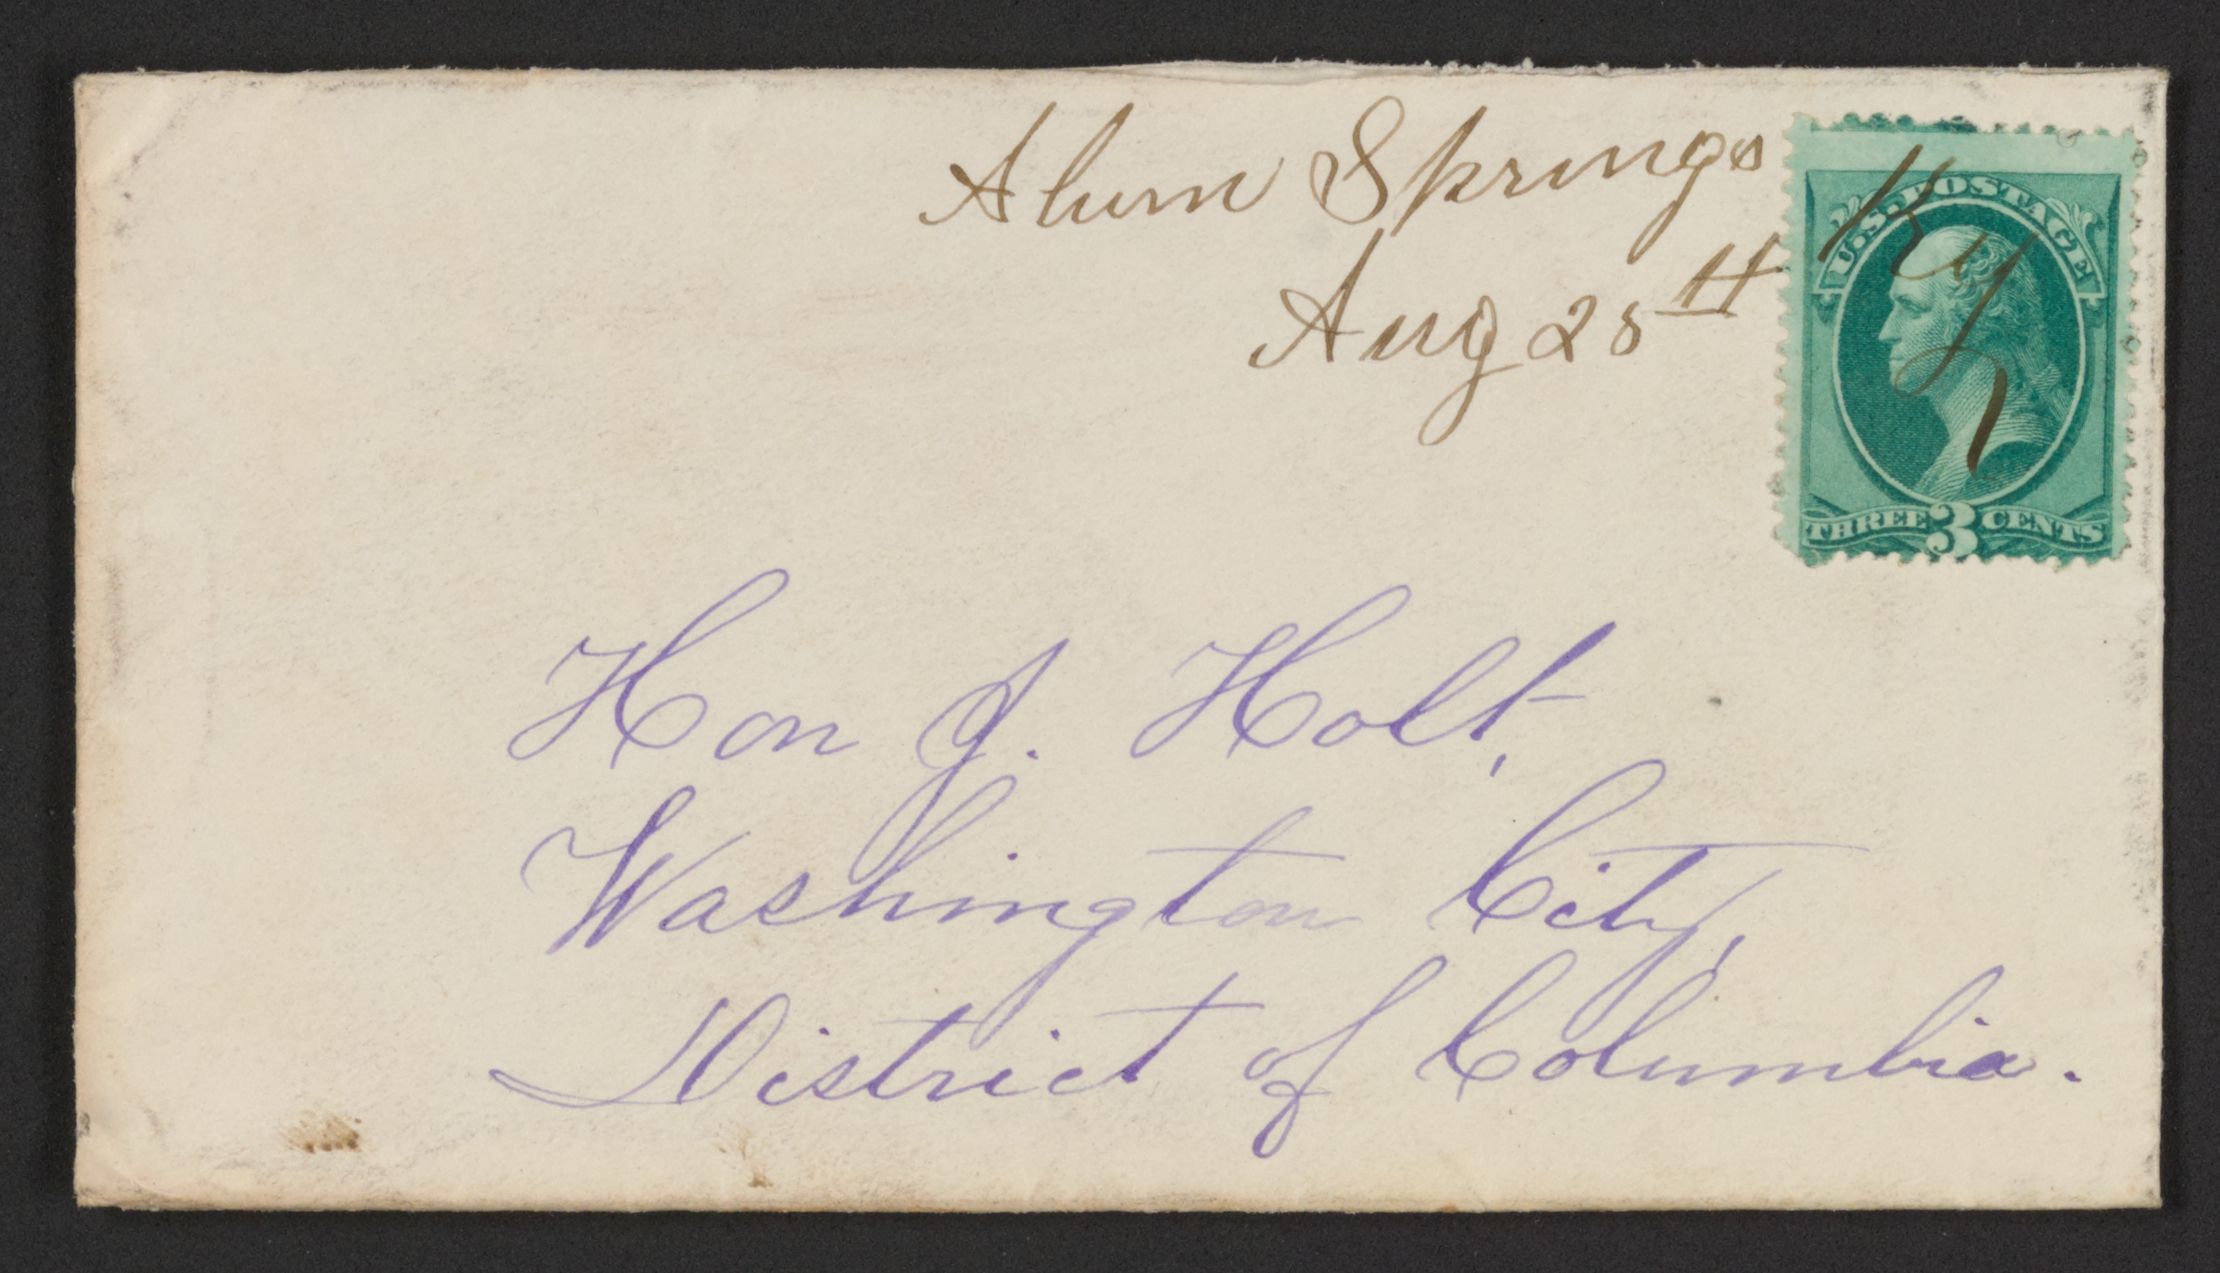 Alum Springs Ky
Aug 28th
U.S. POSTAGE
THREE 3 CENTS
Hon J. Holt,
Washington City,
District of Columbia.